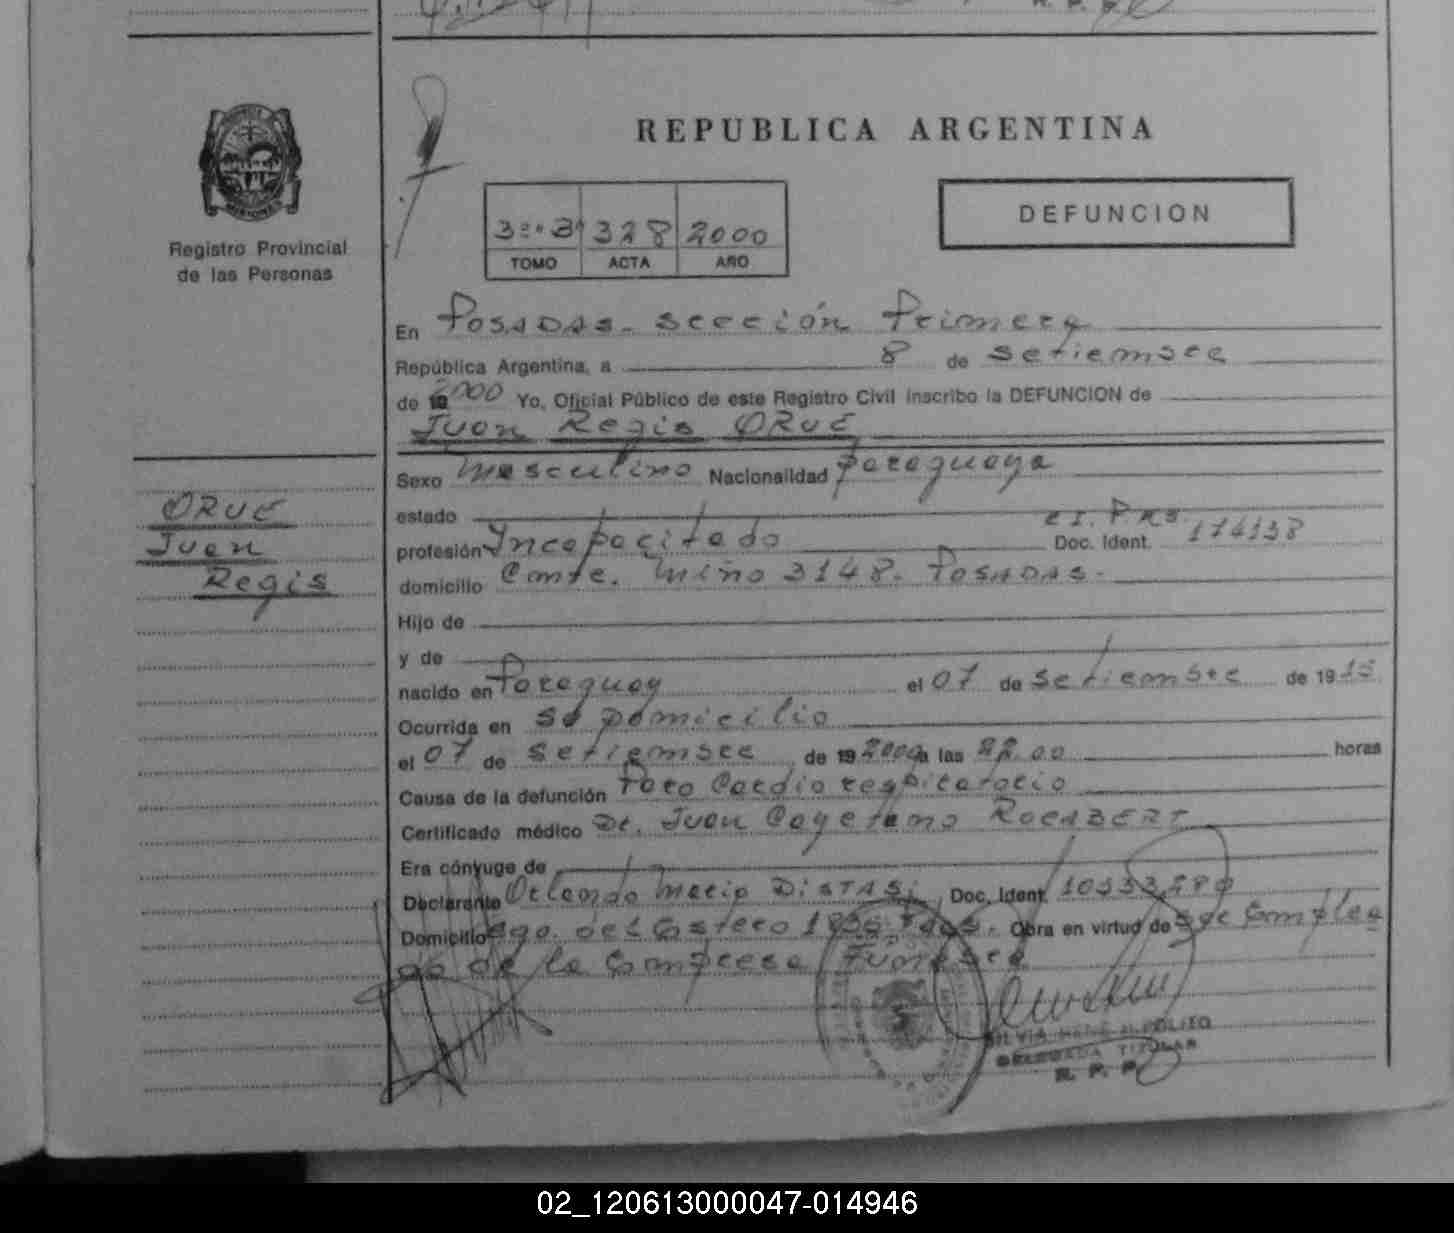 REPUBLICA ARGENTINA
Registro Provincial
de las Personas
328 2000
TOMO ACTA AÑO
DEFUNCION
En Posadas - sección Primera
República Argentina, a 8 de setiembre
de 19 2000 Yo, Oficial Público de este Registro Civil inscribo la DEFUNCION de
Juan Regis ORUE
ORUE
Juan
Regis
Sexo masculino Nacionalidad paraguaya
estado
profesión Incapacitado C I. Doc. Ident. 174138
domicilio Cmte. Miño 3148. Posadas.
Hijo de
y de
nacido en Paraguay el 07 de setiembre de 1915
Ocurrida en su domicilio
el 07 de setiembre de 19 2000 a las 22.00 horas
Causa de la defunción Paro Cardiorespiratorio
Certificado médico Dr. Juan Cayetano
Era cónyuge de
Declarante Orlando Mario Doc. Ident. 10533280
Domicilio Sgo. del Estero Obra en virtud de ser Emplea
do de la Empresa Funebre
DELEGADA TITULAR
R. P. P.
02_120613000047-014946